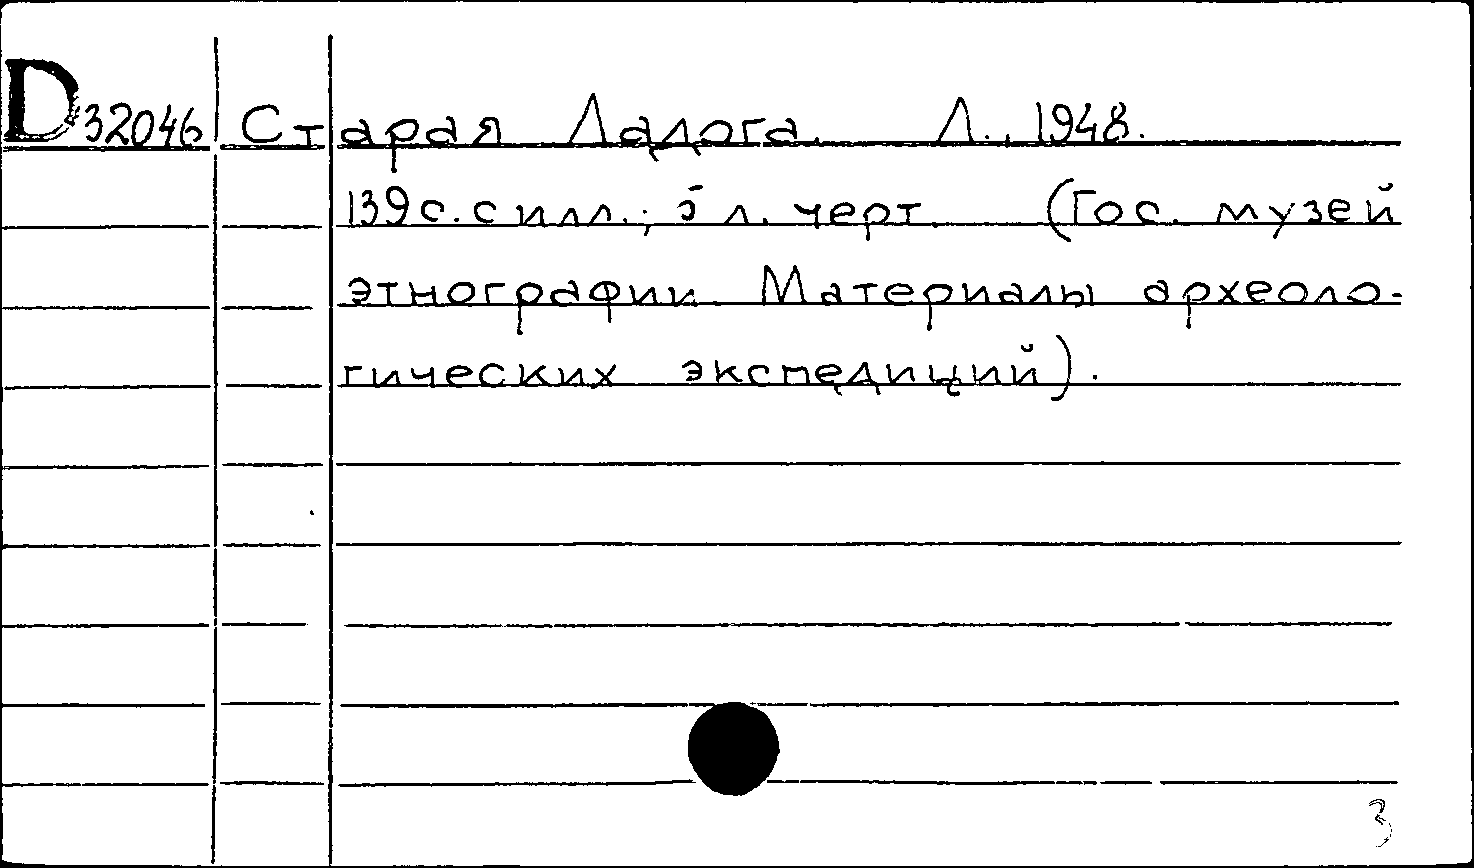 D 32046 Старая Ладога. Л., 1948.
139 с. с илл.; 5 л. черт. (Гос. музей
этнографии. Материалы археоло-
гических экспедиций).
3